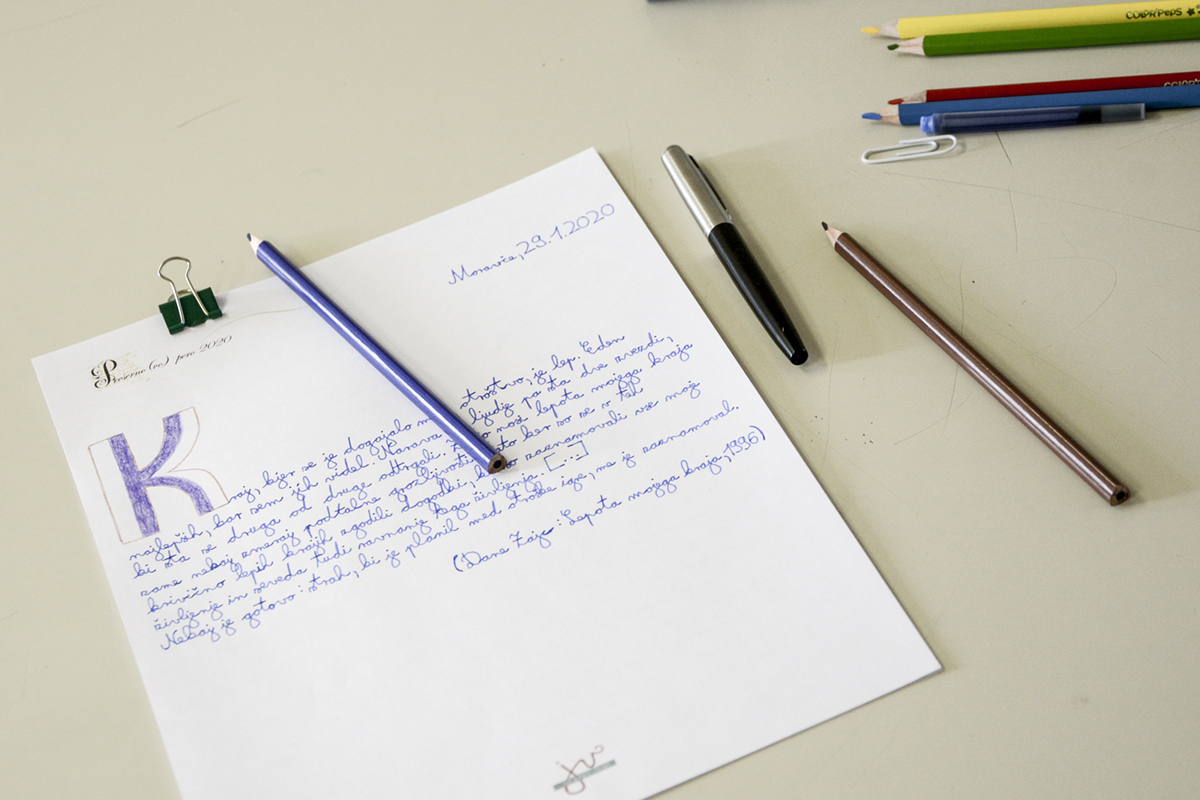 COLOR'PEPS
COLOR'P
Moravče, 29.1.2020
Prešerno (vo) pero 2020
Kraj, kjer se je dogajalo m otroštvo, je lep. Eden
najlepših, kar sem jih videl. Narava ljudje pa sta dve zvezdi,
ki sta se druga od druge odtrgali. nosi lepota mojega kraja
zame nekaj zmeraj podtalne grozljivosti, zato ker so se v teh
krivično lepih krajih zgodili dogodki, ki so zaznamovali vse moje
življenje in seveda tudi ravnanje tega življenja. [...]
Nekaj je gotovo: strah, ki je planil med otroške igre, me je zaznamoval.
(Dane Zajc: Lepota mojega kraja, 1996)